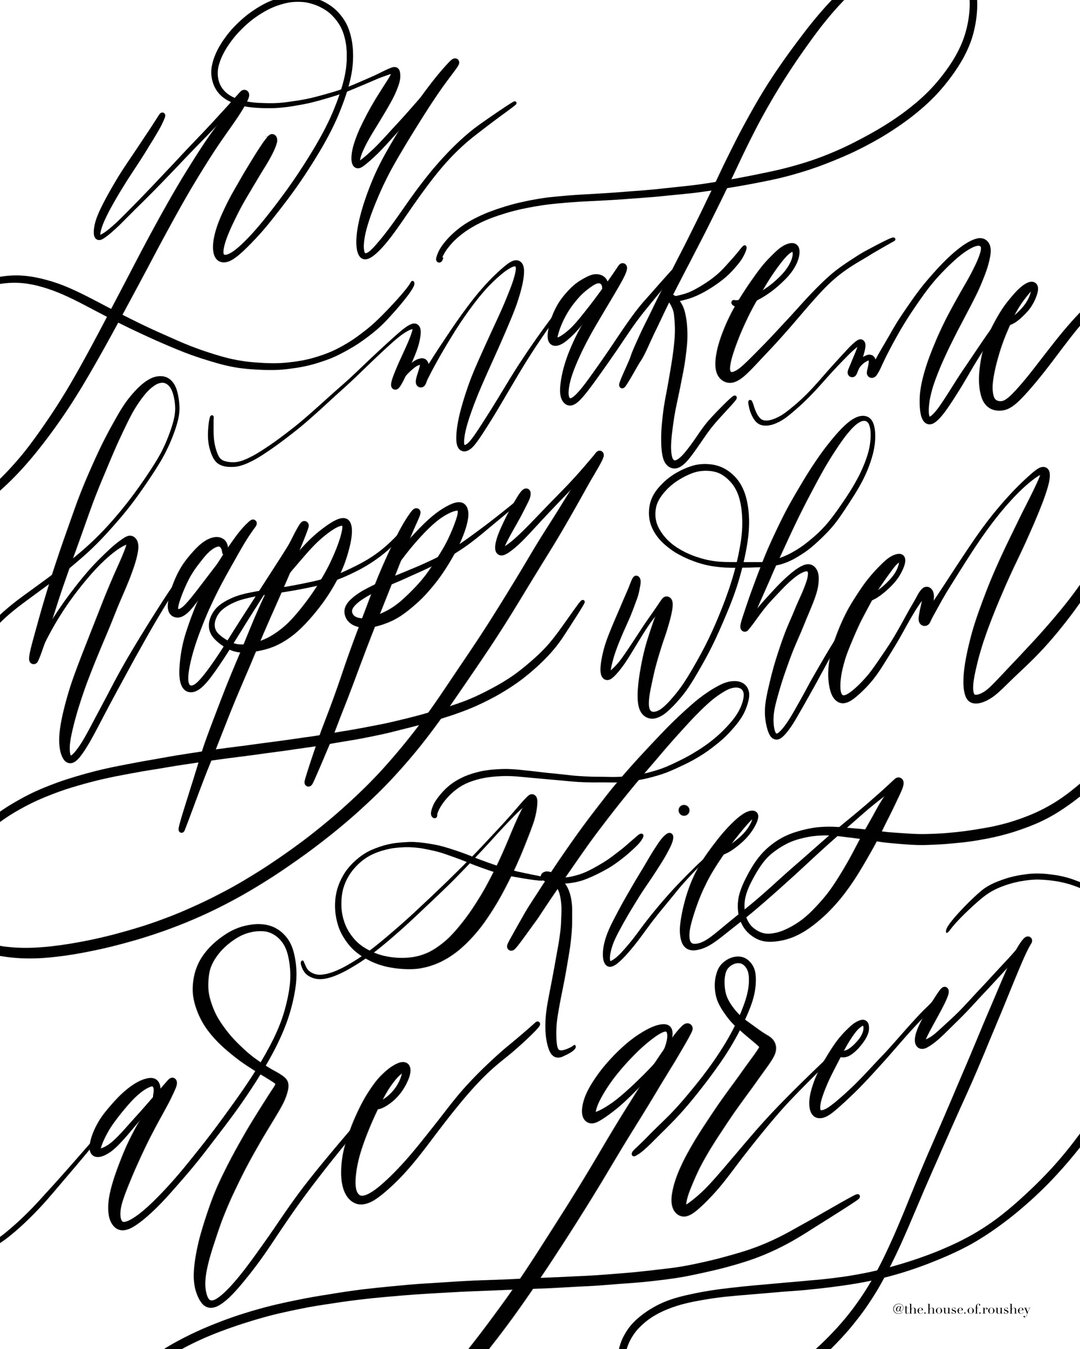 you
make me
happy when
skies
are grey
@the.house.of.roushey